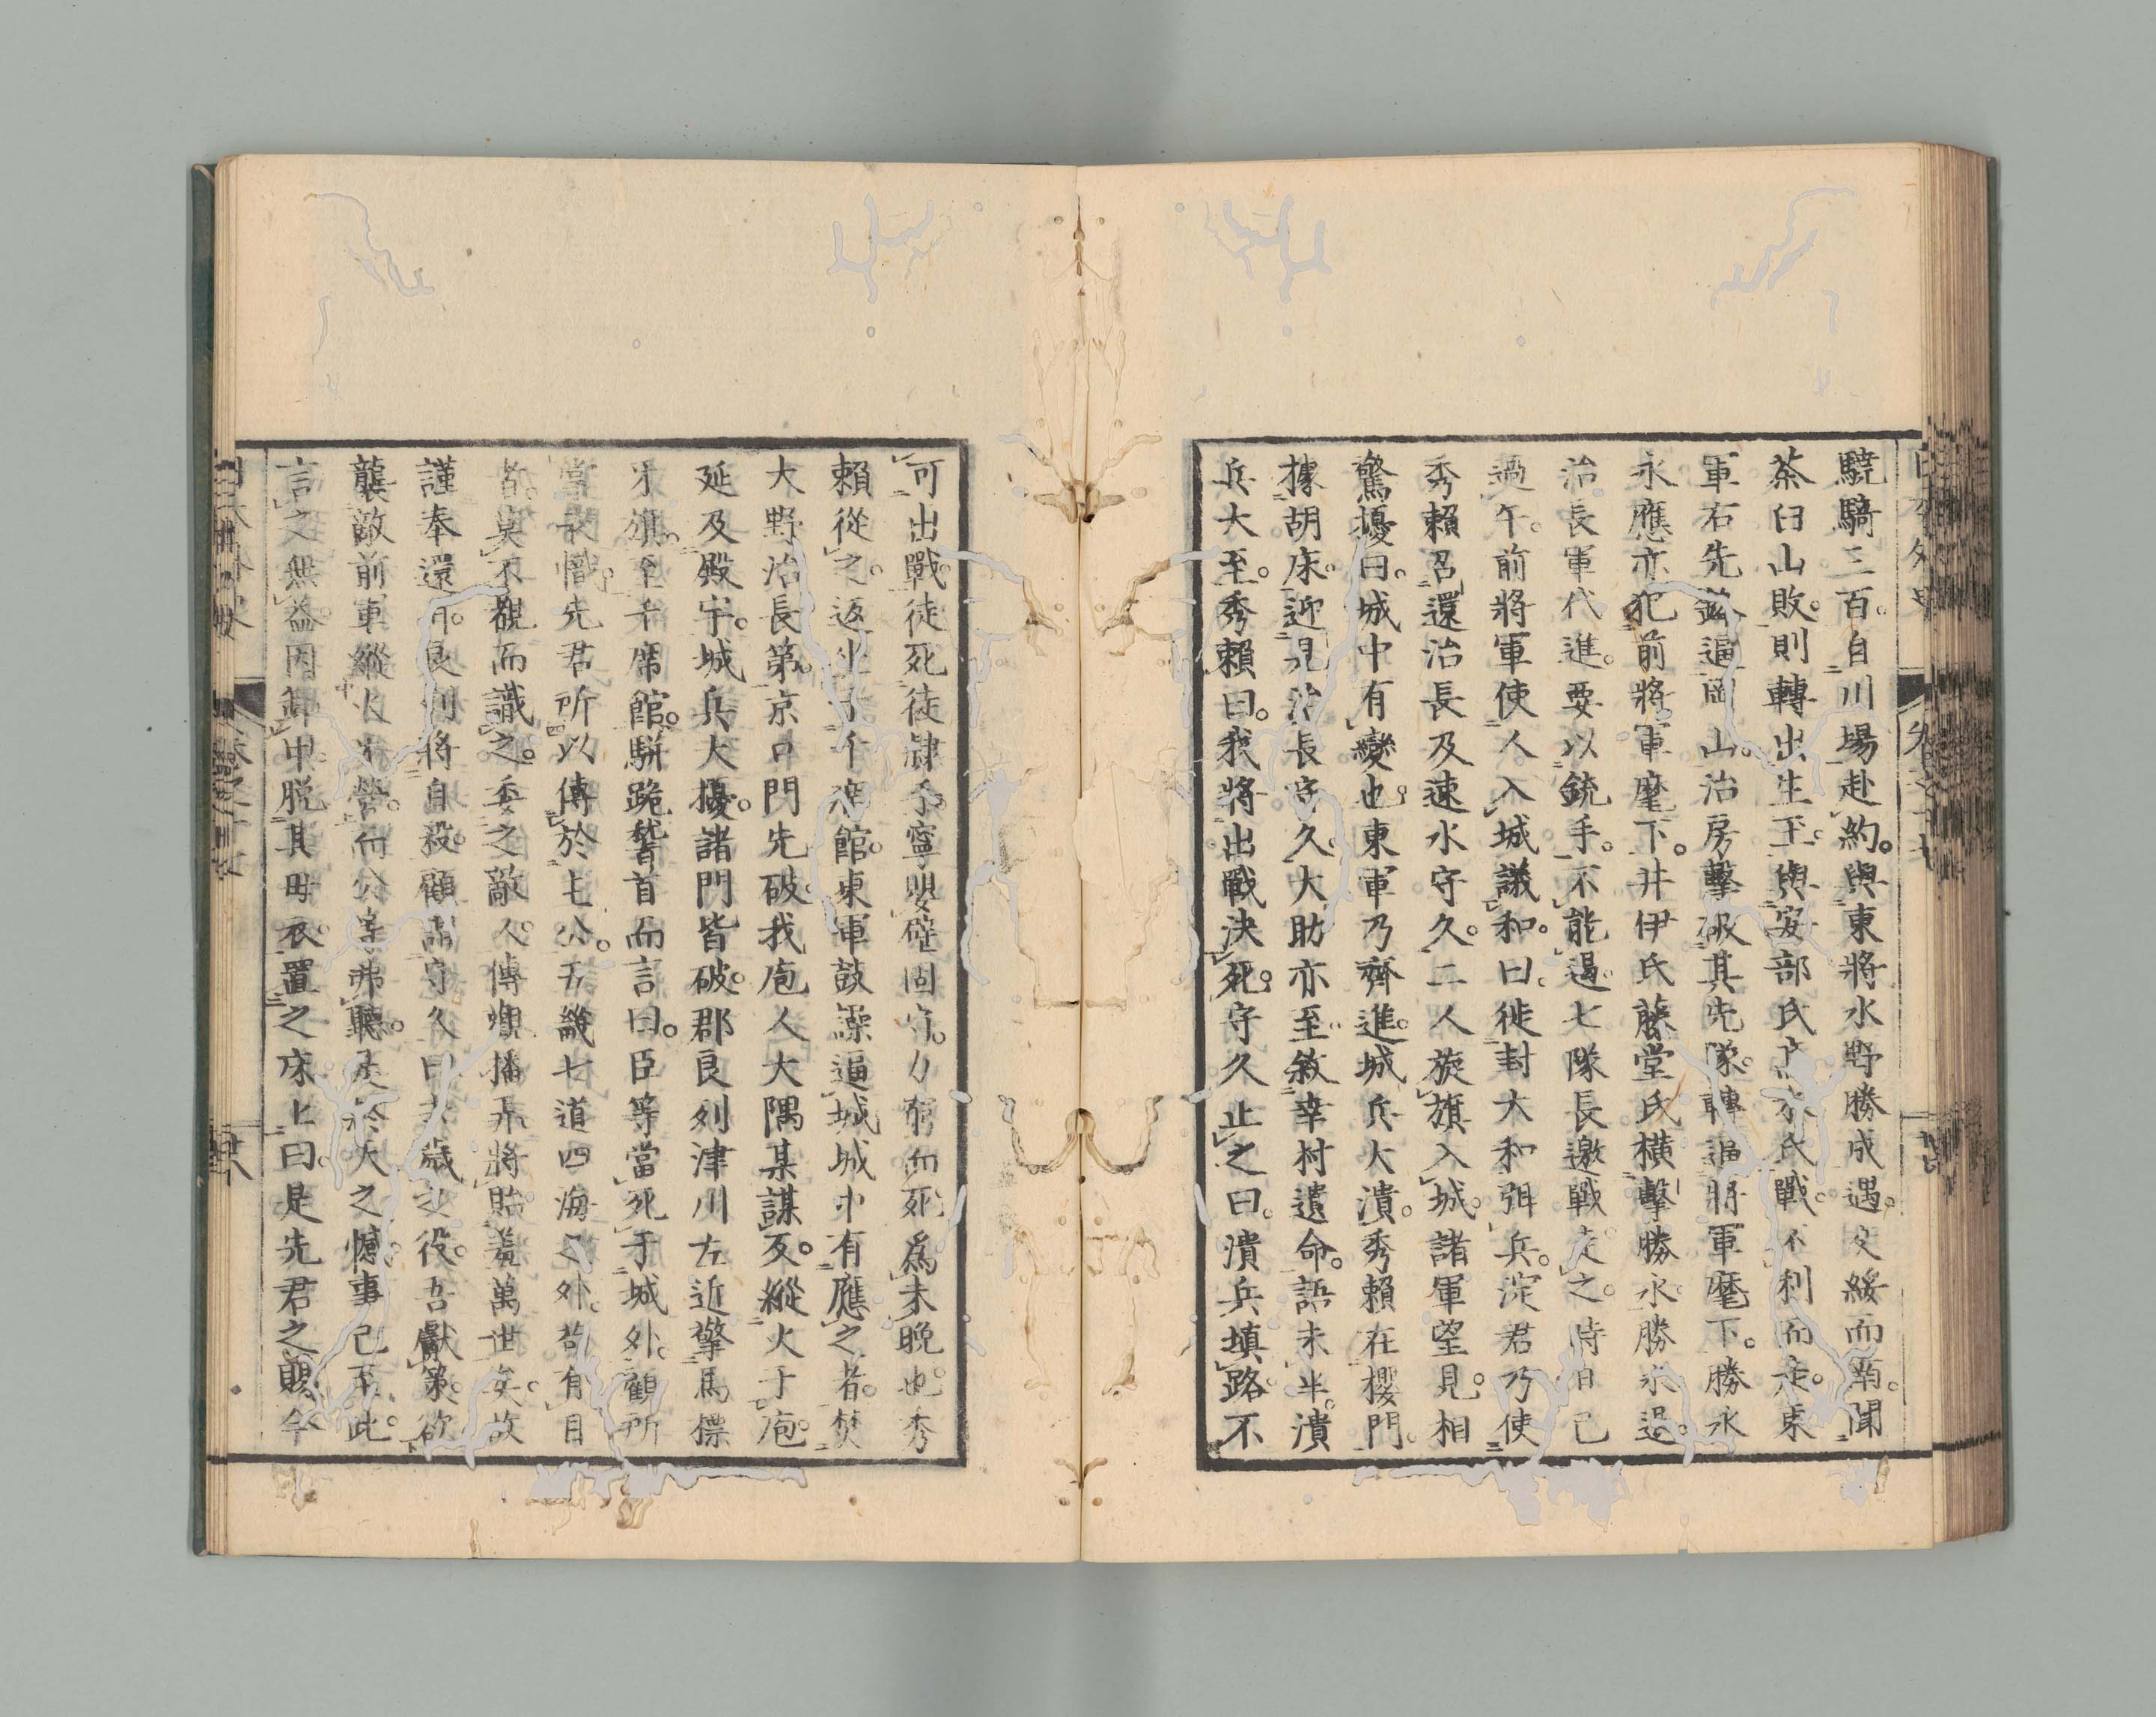 驍騎三百。自川場赴約。與東將水野勝成遇。交綏而南。聞
茶臼山敗。則轉出生玉。與安部氏高木氏戰。不利而走。東
軍石先鋒逼岡山。治房擊破其先隊。轉逼將軍麾下。勝永
永應亦犯前將軍麾下。井伊氏藤堂氏橫擊勝永。勝永退。
治長軍代進。要以銃手。不能遏。七隊長邀戰走之。時日已
過午。前將軍使人入城議和。曰。徙封大和弭兵。淀君乃使
秀賴召還治長及速水守久。二人旋旗入城。諸軍望見。相
驚擾曰。城中有變也。東軍乃齊進。城兵大潰。秀賴在櫻門。
據胡床。迎見治長守久。大助亦至。敘幸村遺命。語未半。潰
兵大至。秀賴曰。我將出戰決死。守久止之曰。潰兵填路。不
可出戰。徒死徒肆手。寧嬰壁固守。力窮而死。爲未晚也。秀
賴從之。返坐于千席館。東軍鼓譟逼城。城中有應之者。焚
大野治長第。京口門先破。我庖人大隅某謀反。縱火于庖。
延及殿宇。城兵大擾。諸門皆破。郡良列津川左近擎馬標
牙旗。至千席館。駢跪稽首而言曰。臣等當死于城外。顧所
掌表幟。先君所以傳於七公。五畿七道四海之外。苟有目
者。莫不覩而識之。委之敵人。傳 播 將貽羞萬世矣。故
謹奉還 良列將自殺。顧謂守久曰。去歲之役。吾獻策。欲
襲敵前軍縱火 營。而公等弗聽。 於大之憾。事已至此。
言之無益。因卸甲脫其母衣。置之床上曰。是先君之賜。今